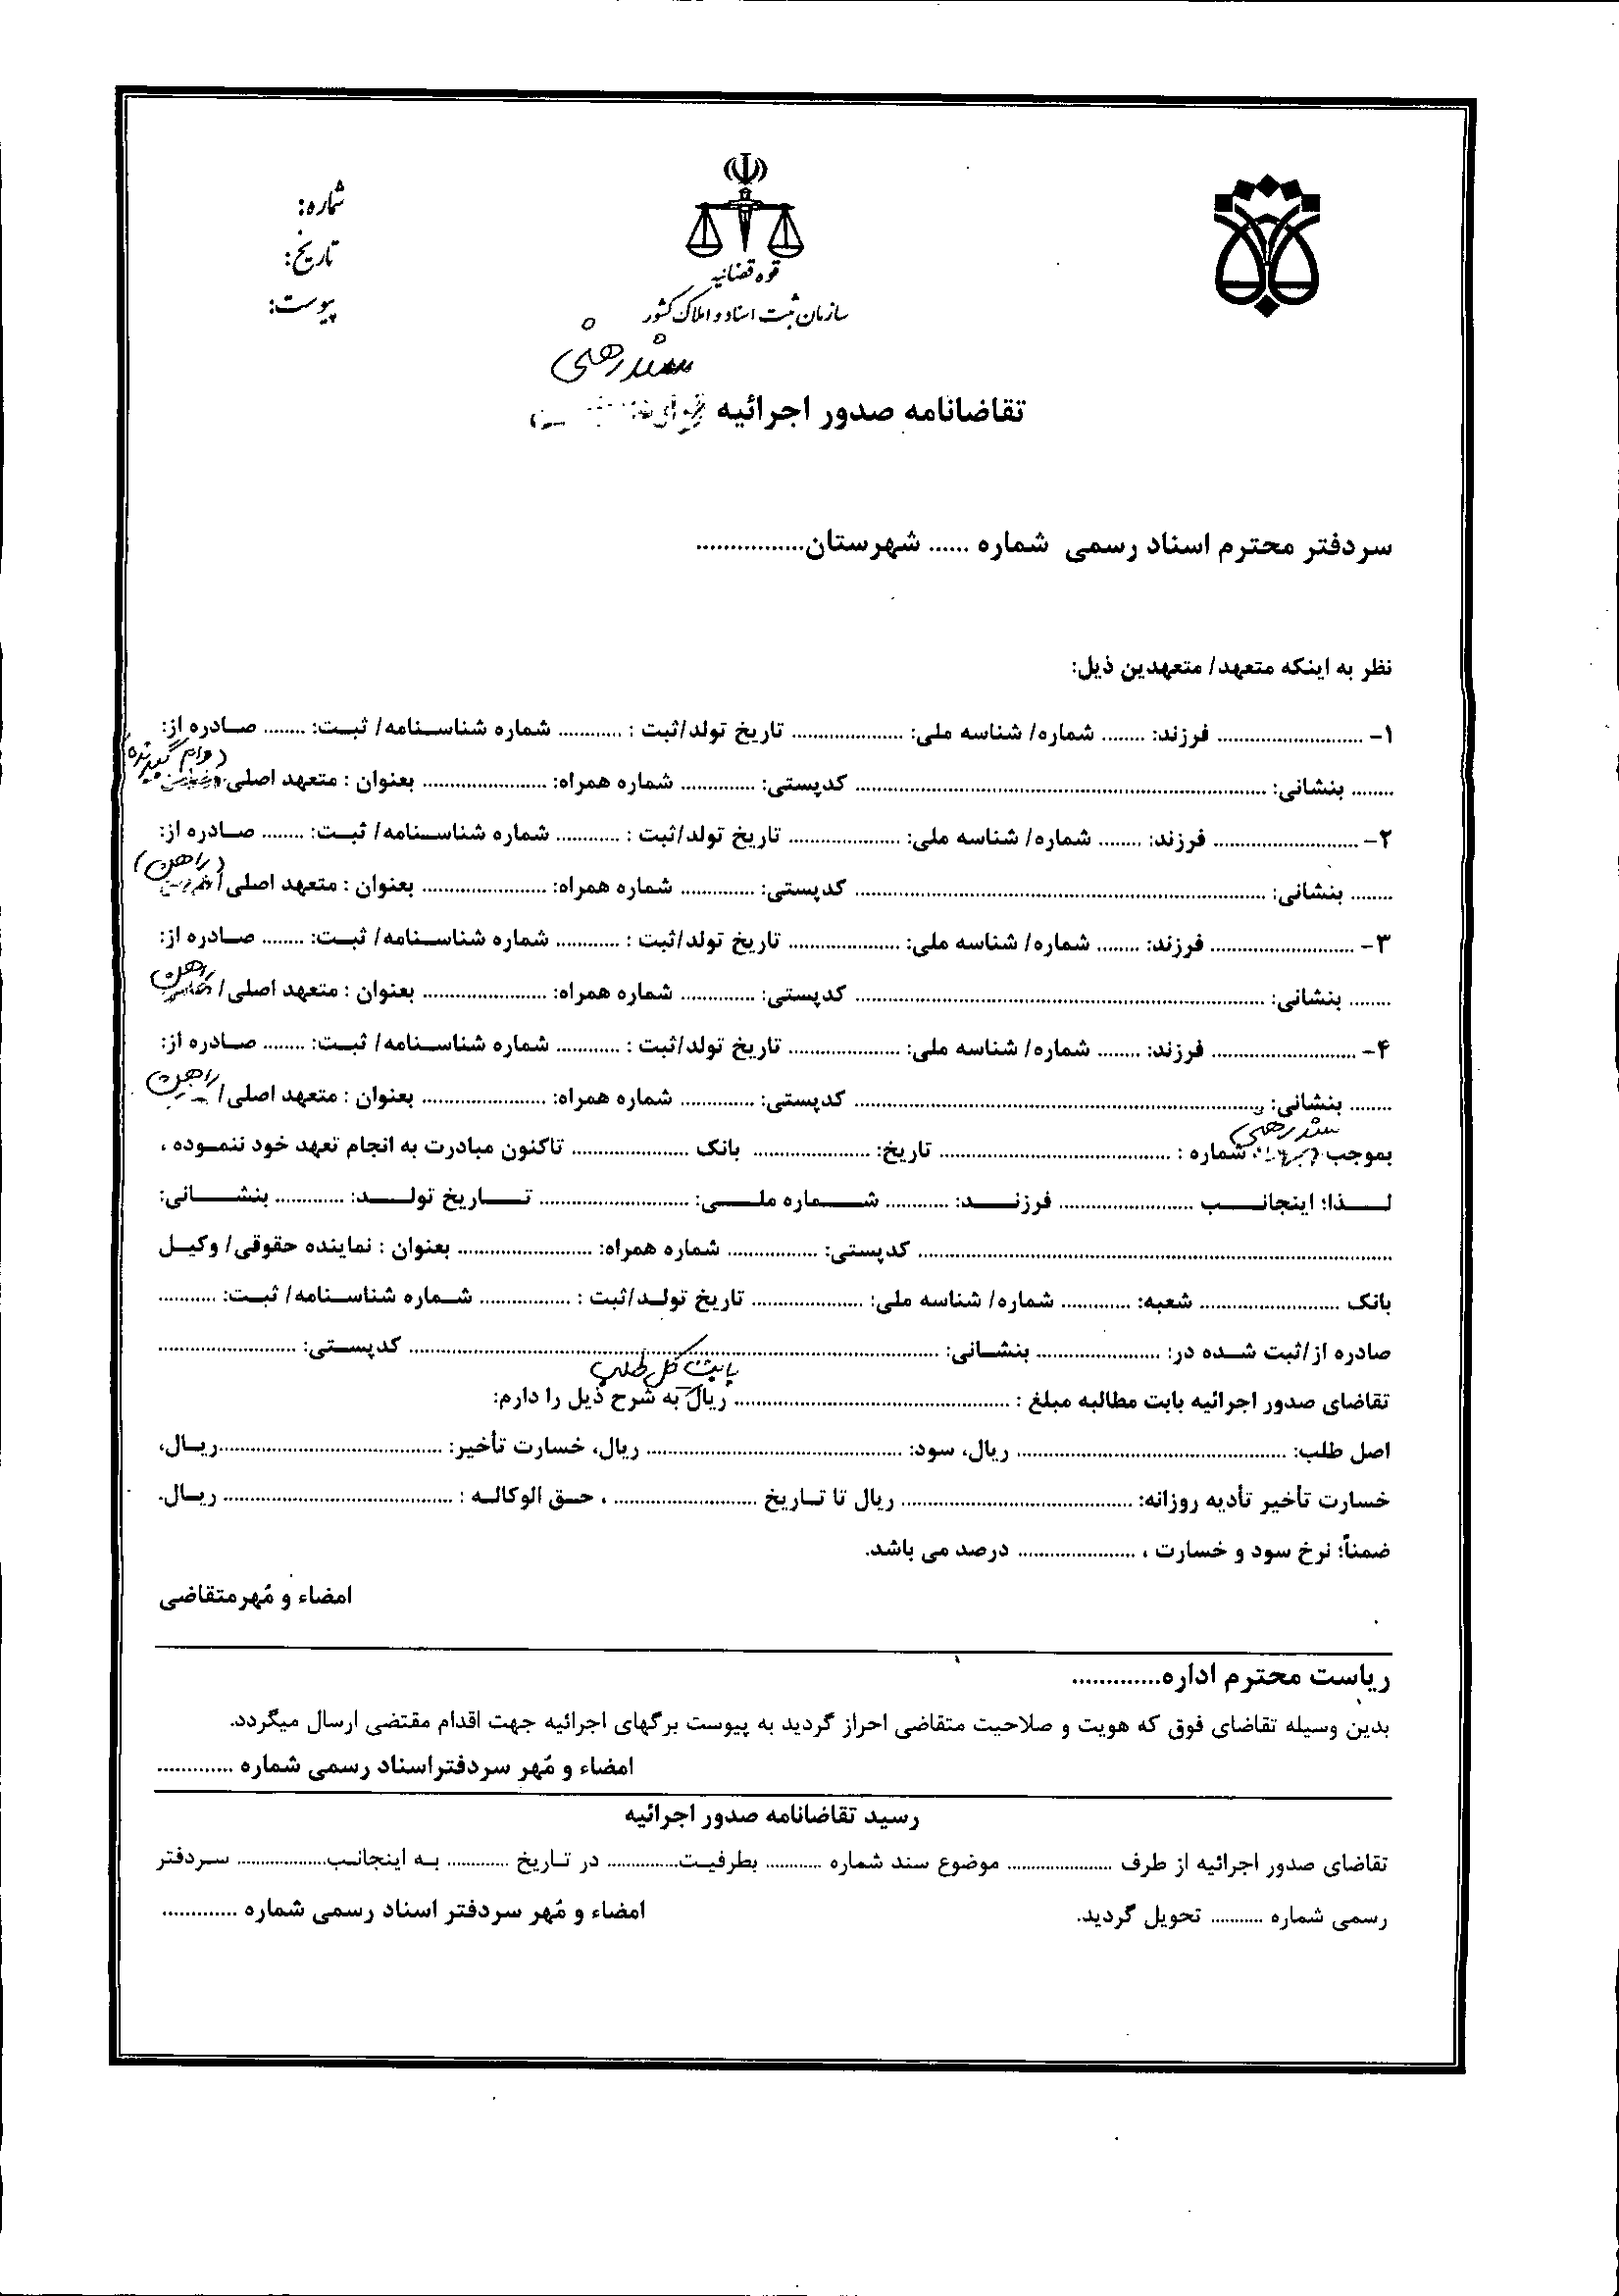 شماره:
تاریخ:
پیوست:
قوه قضائیه
سازمان ثبت اسناد و املاک کشور
سند رهنی
تقاضانامه صدور اجرائیه
سردفتر محترم اسناد رسمی شماره ...... شهرستان................
نظر به اینکه متعهد/ متعهدین ذیل:
۱- .......................... فرزند: ........ شماره/ شناسه ملی: .................... تاریخ تولد/ثبت : ............ شماره شناسنامه/ ثبت: ........ صادره از:
(وام گیرنده)
........ بنشانی: ........................................................................ کدپستی: .............. شماره همراه: ....................... بعنوان : متعهد اصلی
۲- .......................... فرزند: ........ شماره/ شناسه ملی: .................... تاریخ تولد/ثبت : ............ شماره شناسنامه/ ثبت: ........ صادره از:
(راهن)
........ بنشانی: ........................................................................ کدپستی: .............. شماره همراه: ....................... بعنوان : متعهد اصلی/
۳- .......................... فرزند: ........ شماره/ شناسه ملی: .................... تاریخ تولد/ثبت : ............ شماره شناسنامه/ ثبت: ........ صادره از:
راهن
........ بنشانی: ........................................................................ کدپستی: .............. شماره همراه: ....................... بعنوان : متعهد اصلی/
۴- .......................... فرزند: ........ شماره/ شناسه ملی: .................... تاریخ تولد/ثبت : ............ شماره شناسنامه/ ثبت: ........ صادره از:
راهن
........ بنشانی: ........................................................................ کدپستی: .............. شماره همراه: ....................... بعنوان : متعهد اصلی/
سند رهنی
بموجب شماره : .......................................... تاریخ: ...................... بانک ...................... تاکنون مبادرت به انجام تعهد خود ننموده ،
لذا؛ اینجانب ......................... فرزند: ............ شماره ملی: ........................... تاریخ تولد: ............ بنشانی:
...................................................................................... کدپستی: ................ شماره همراه: ........................ بعنوان : نماینده حقوقی/ وکیل
بانک ......................... شعبه: ............ شماره/ شناسه ملی: .................... تاریخ تولد/ثبت : ................ شماره شناسنامه/ ثبت: ..........
صادره از/ثبت شده در: ...................... بنشانی: ................................................................................................ کدپستی: .........................
بابت کل طلب
تقاضای صدور اجرائیه بابت مطالبه مبلغ : .................................................. ریال به شرح ذیل را دارم:
اصل طلب: ................................................ ریال، سود: .............................................. ریال، خسارت تأخیر: ........................................ریال،
خسارت تأخیر تأدیه روزانه: .......................................... ریال تا تاریخ .......................... ، حق الوکاله : .......................................... ریال.
ضمناً؛ نرخ سود و خسارت ، ...................... درصد می باشد.
امضاء و مُهرمتقاضی
ریاست محترم اداره.............
بدین وسیله تقاضای فوق که هویت و صلاحیت متقاضی احراز گردید به پیوست برگهای اجرائیه جهت اقدام مقتضی ارسال میگردد.
امضاء و مُهر سردفتراسناد رسمی شماره .............
رسید تقاضانامه صدور اجرائیه
تقاضای صدور اجرائیه از طرف .................... موضوع سند شماره .......... بطرفیت.............. در تاریخ ............ به اینجانب................. سردفتر
رسمی شماره .......... تحویل گردید.
امضاء و مُهر سردفتر اسناد رسمی شماره .............